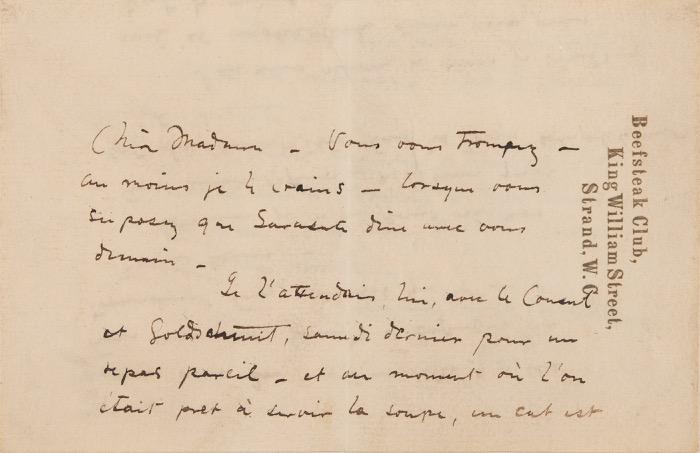 Beefsteak Club,
King William Street,
Strand, W. C.
Chère Madame – Vous vous trompez –
au moins je le crains – lorsque vous
supposez que Sarasate dine avec vous
demain –
Je l'attendais, lui, avec le
et Goldschmit, samedi dernier pour un
repas pareil – et au moment où l'on
était pret à servir la soupe, un est